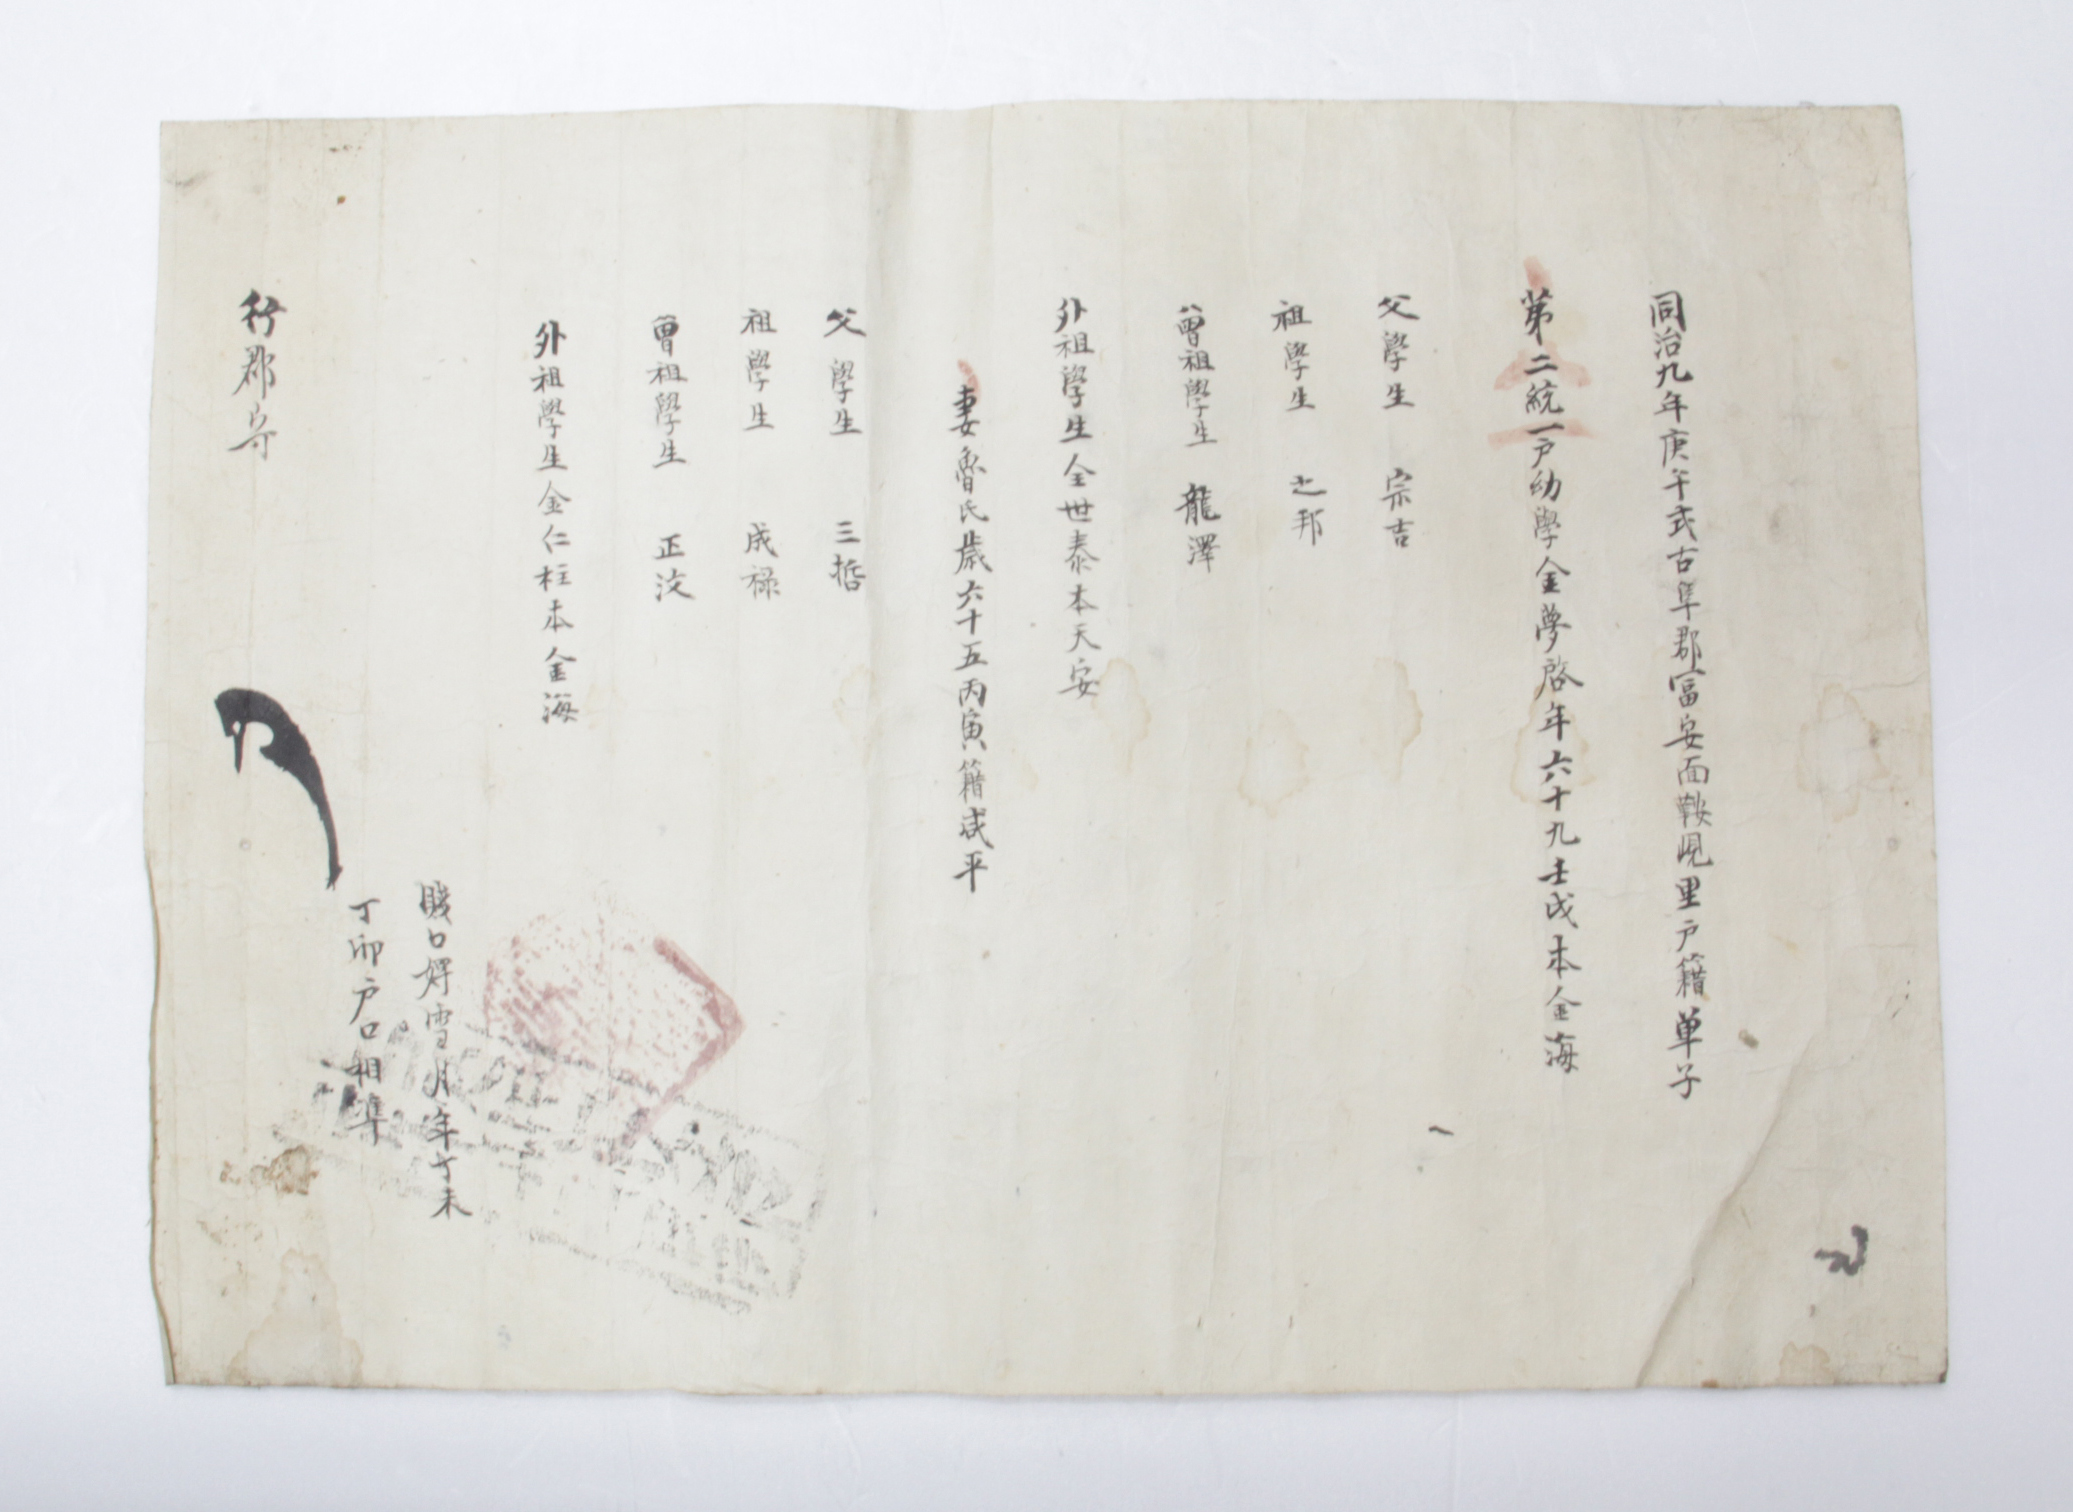 同治九年庚午式古阜郡富安面鞍峴里戶籍單子
第二統一戶幼學金夢啓年六十九壬戌本金海
父學生 宗吉
祖學生 之邦
曾祖學生 龍澤
外祖學生全世泰本天安
妻魯氏歲六十五丙寅籍咸平
父學生 三哲
祖學生 成祿
曾祖學生 正汶
外祖學生金仁柱本金海
賤口婢雪月年丁未
丁卯戶口相準
行郡守